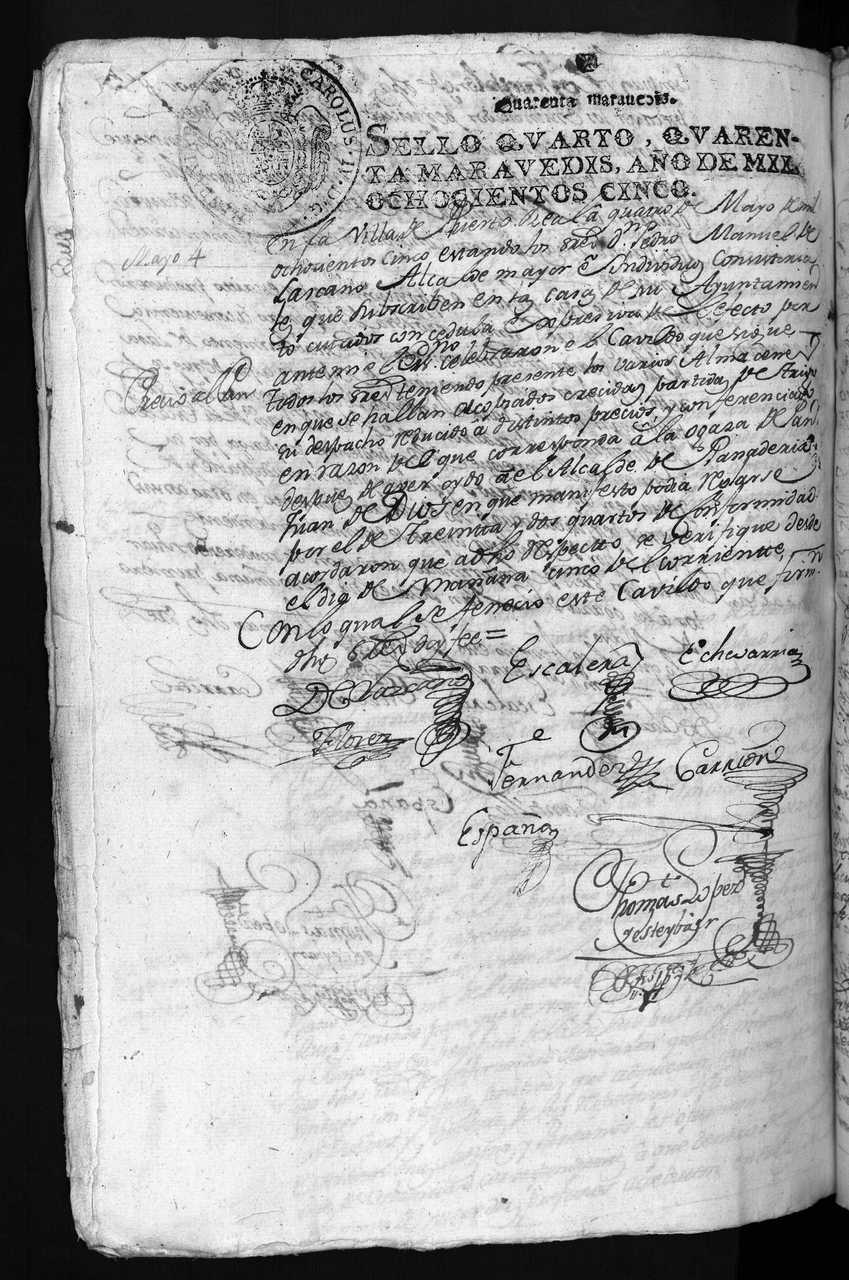 CAROLUS IV D G
Quarenta maravedis.
SELLO QVARTO, QVAREN-
TA MARAVEDIS, AÑO DE MIL
OCHOCIENTOS CINCO.
Mayo 4
En la Villa de Puerto Real a quatro de Mayo de mil
ochocientos cinco estando los Sres Dn. Pedro Manuel de
Larcano Alcalde mayor é Individuos Consistoria
les que subscriben en la casa de su Ayuntamien
to citados con cedula expresiva del efecto por
ante mi el Esno. celebraron el Cavildo que sigue
Precio del Pan
todos los Sres teniendo presente los varios Almacene
en que se hallan acopiados crecidas partidas de trigo
su despacho reducido a distintos precios, y conferenciado
en razon del que corresponda á la ogaza de Pan
despues de aver oydo á el Alcalde de Panaderia
Juan de Dios en que manifesto podia
por el de treinta y dos quartos de conformidad
acordaron que a dho respecto se verifique desde
el dia de mañana cinco del corriente,
Con lo qual se fenecio este Cavildo que firmn.
dhos Sres doy fee=
De Larcano
Escalera
Echevarria
Florez
Fernandez
Carrion
España
Thomas Lopez